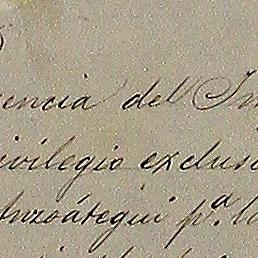 encia del In
ivilegio exclusi
Anzoátegui pª. l